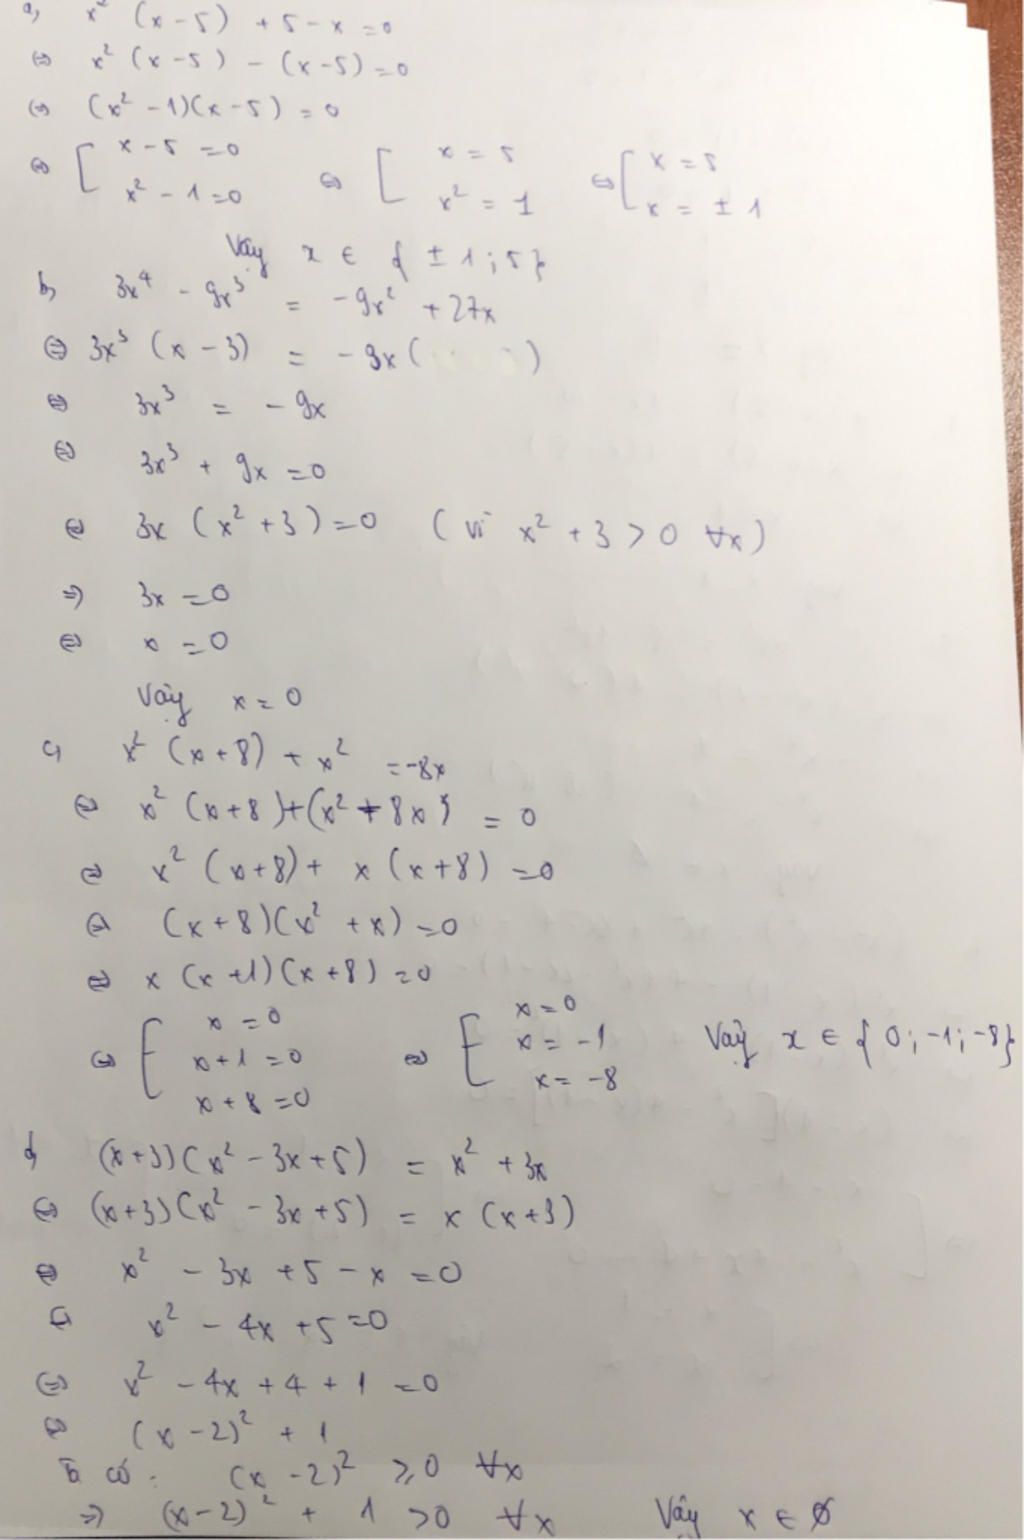 a, x² (x - 5) + 5 - x = 0
⇔ x² (x - 5) - (x - 5) = 0
⇔ (x² - 1)(x - 5) = 0
⇔ [ x - 5 = 0 ⇔ [ x = 5 ⇔ [ x = 5
x² - 1 = 0 x² = 1 x = ± 1
Vậy x ∈ { ± 1 ; 5 }
b, 3x⁴ - 9x³ = -9x² + 27x
⇔ 3x³ (x - 3) = - 9x ( )
⇔ 3x³ = - 9x
⇔ 3x³ + 9x = 0
⇔ 3x (x² + 3) = 0 ( vì x² + 3 > 0 ∀x )
⇒ 3x = 0
⇔ x = 0
Vậy x = 0
c, x² (x + 8) + x² = -8x
⇔ x² (x + 8) + (x² + 8x) = 0
⇔ x² (x + 8) + x (x + 8) = 0
⇔ (x + 8)(x² + x) = 0
⇔ x (x + 1)(x + 8) = 0
⇔ [ x = 0 ⇔ [ x = 0
x + 1 = 0 x = -1 Vậy x ∈ { 0 ; -1 ; -8 }
x + 8 = 0 x = -8
d, (x + 3)(x² - 3x + 5) = x² + 3x
⇔ (x + 3)(x² - 3x + 5) = x (x + 3)
⇔ x² - 3x + 5 - x = 0
⇔ x² - 4x + 5 = 0
⇔ x² - 4x + 4 + 1 = 0
⇔ (x - 2)² + 1
Ta có : (x - 2)² ≥ 0 ∀x
⇒ (x - 2)² + 1 > 0 ∀x Vậy x ∈ ∅